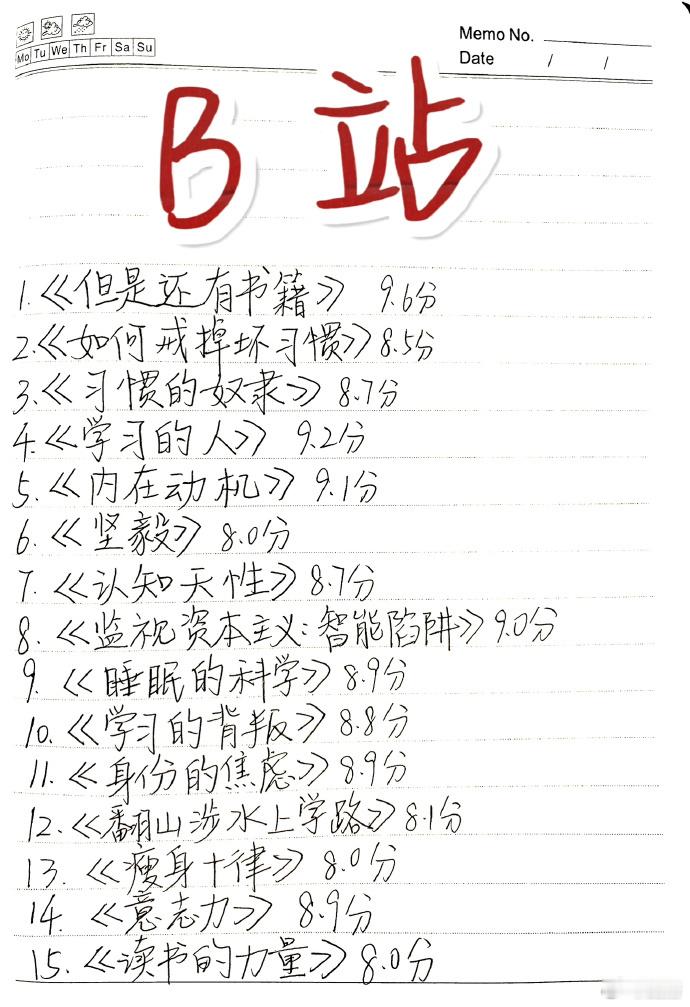 Memo No.
Mo Tu We Th Fr Sa Su
Date / /
B 站
1.《但是还有书籍》 9.6分
2.《如何戒掉坏习惯》8.5分
3.《习惯的奴隶》8.7分
4.《学习的人》 9.2分
5.《内在动机》9.1分
6.《坚毅》8.0分
7.《认知天性》8.7分
8.《监视资本主义:智能陷阱》9.0分
9.《睡眠的科学》8.9分
10.《学习的背叛》8.8分
11.《身份的焦虑》8.9分
12.《翻山涉水上学路》8.1分
13.《瘦身十律》8.0分
14.《意志力》 8.9分
15.《读书的力量》8.0分